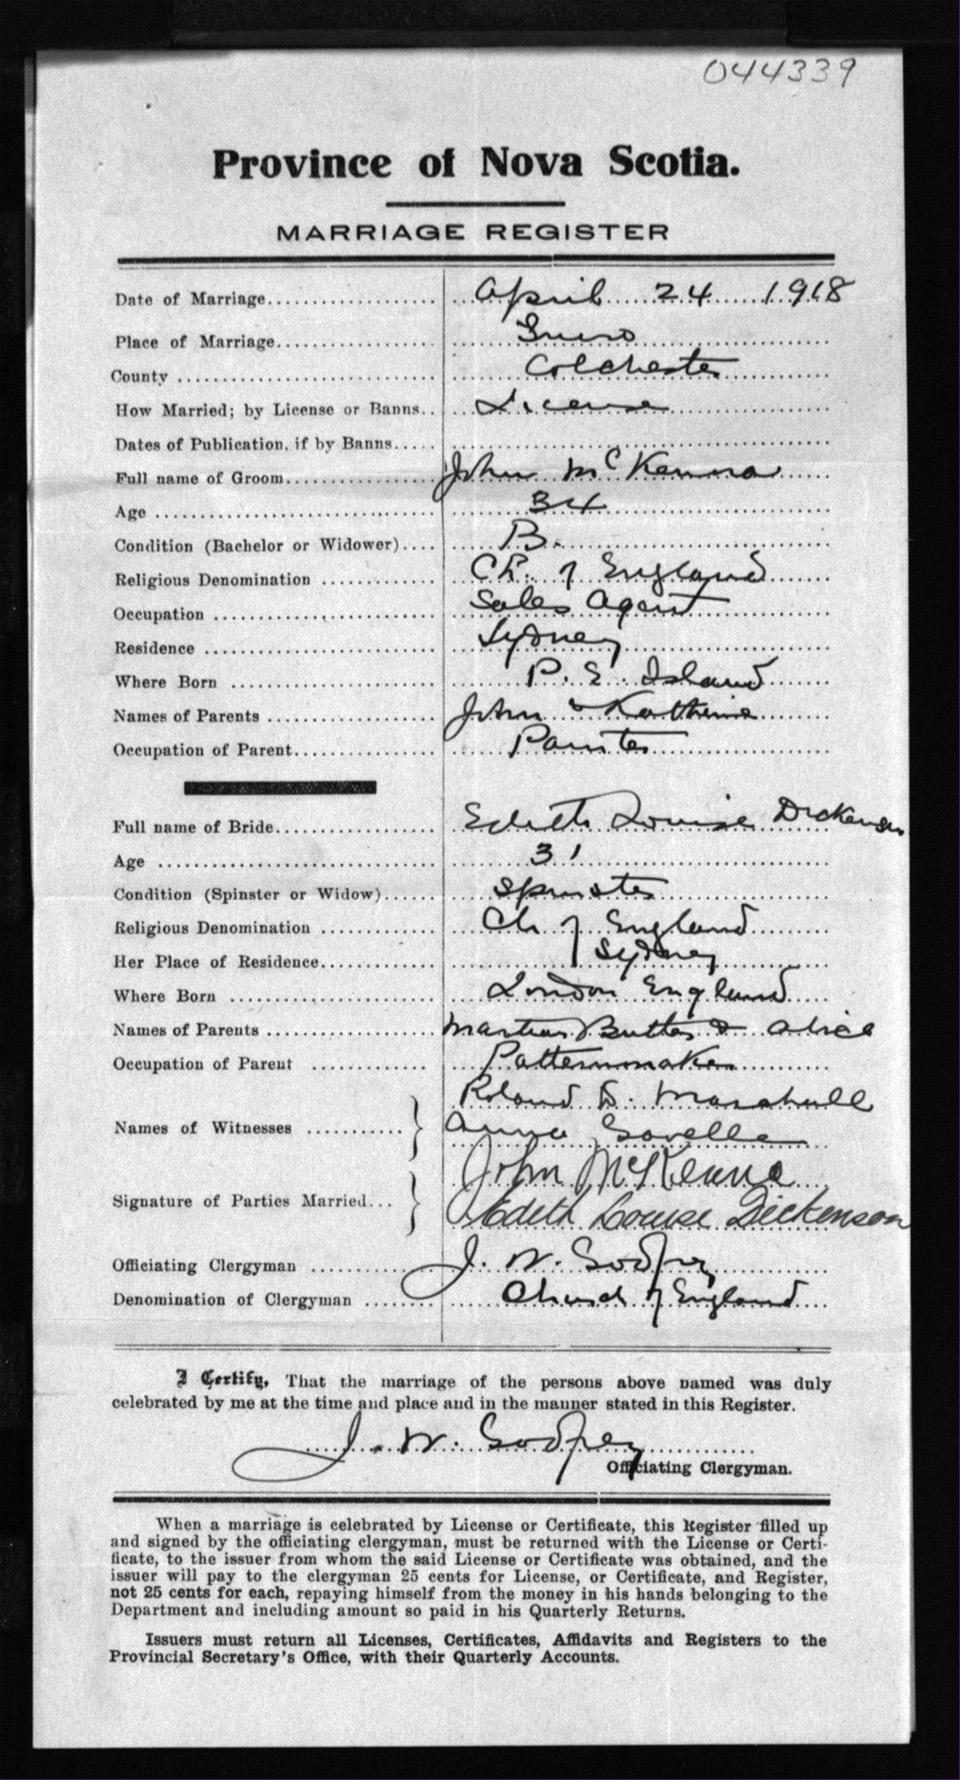 044339
Province of Nova Scotia.
MARRIAGE REGISTER
Date of Marriage.................... April 24 1918
Place of Marriage.................. Truro
County ............................. Colchester
How Married; by License or Banns.. License
Dates of Publication, if by Banns.....
Full name of Groom.................. John McKenna
Age ................................ 34
Condition (Bachelor or Widower).... B.
Religious Denomination ............. Ch. of England
Occupation ......................... Sales Agent
Residence .......................... Sydney
Where Born ......................... P. E. Island
Names of Parents ................... John & Katherine
Occupation of Parent................ Painter
Full name of Bride.................. Edith Louise Dickenson
Age ................................ 31
Condition (Spinster or Widow)...... Spinster
Religious Denomination ............. Ch of England
Her Place of Residence.............. Sydney
Where Born ......................... London England
Names of Parents ................... Butler & Alice
Occupation of Parent ............... Patternmaker
Roland D. Marshall
Names of Witnesses ........... } Anna
John McKenna
Signature of Parties Married... } Edith Louise Dickenson
Officiating Clergyman .............. J. W. Godfrey
Denomination of Clergyman ........ Church of England
I Certify, That the marriage of the persons above named was duly
celebrated by me at the time and place and in the manner stated in this Register.
J. W. Godfrey
Officiating Clergyman.
When a marriage is celebrated by License or Certificate, this Register filled up
and signed by the officiating clergyman, must be returned with the License or Certi-
ficate, to the issuer from whom the said License or Certificate was obtained, and the
issuer will pay to the clergyman 25 cents for License, or Certificate, and Register,
not 25 cents for each, repaying himself from the money in his hands belonging to the
Department and including amount so paid in his Quarterly Returns.
Issuers must return all Licenses, Certificates, Affidavits and Registers to the
Provincial Secretary's Office, with their Quarterly Accounts.